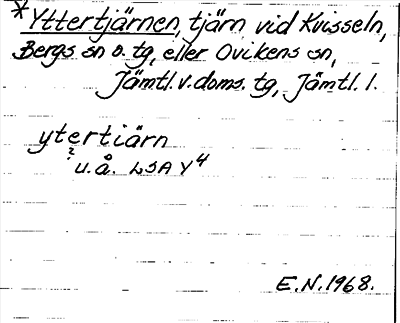 * Yttertjärnen, tjärn vid Kvisseln,
Bergs sn o. tg, eller Ovikens sn,
Jämtl. v. doms. tg, Jämtl. l.
ytertiärn
? u.å. LSA Y4
E.N. 1968.